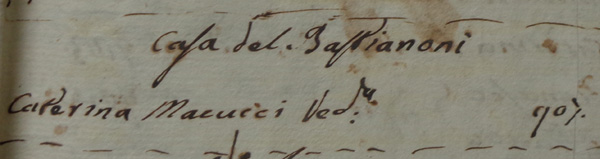 Casa del Bastianoni
Caterina Macucci Ved:ª 907.